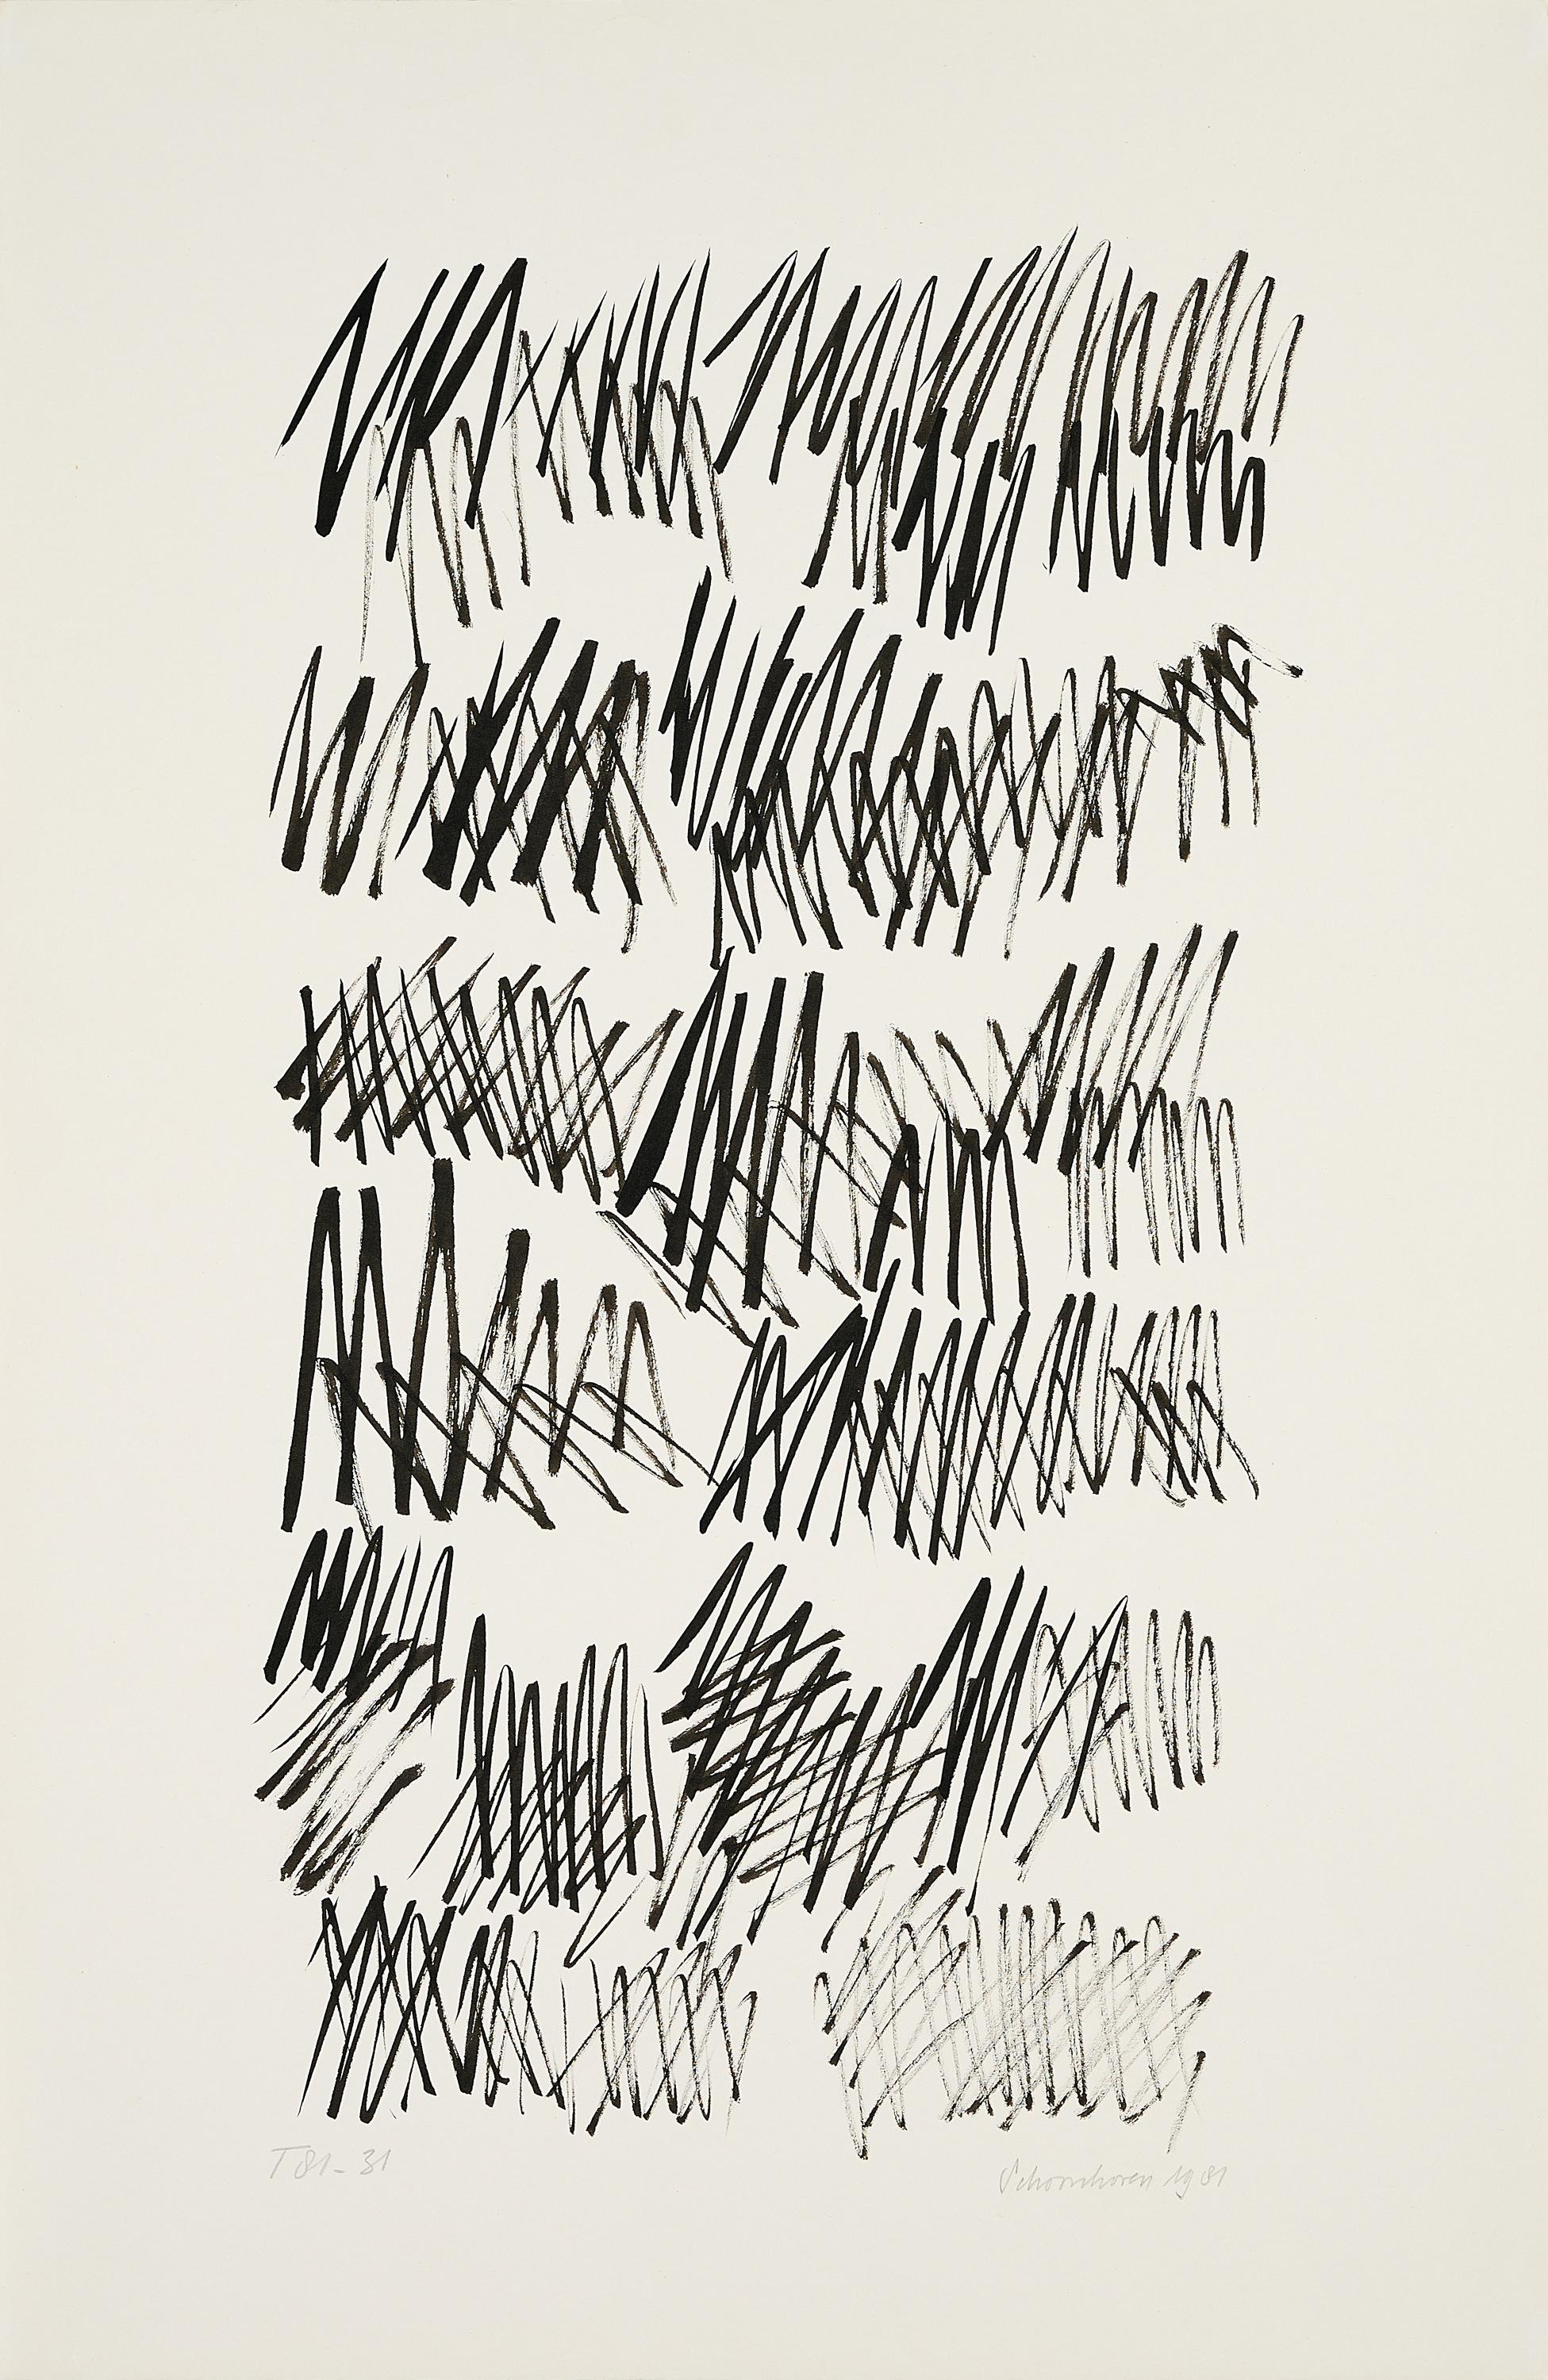 T 81-31
Schoonhoven 1981